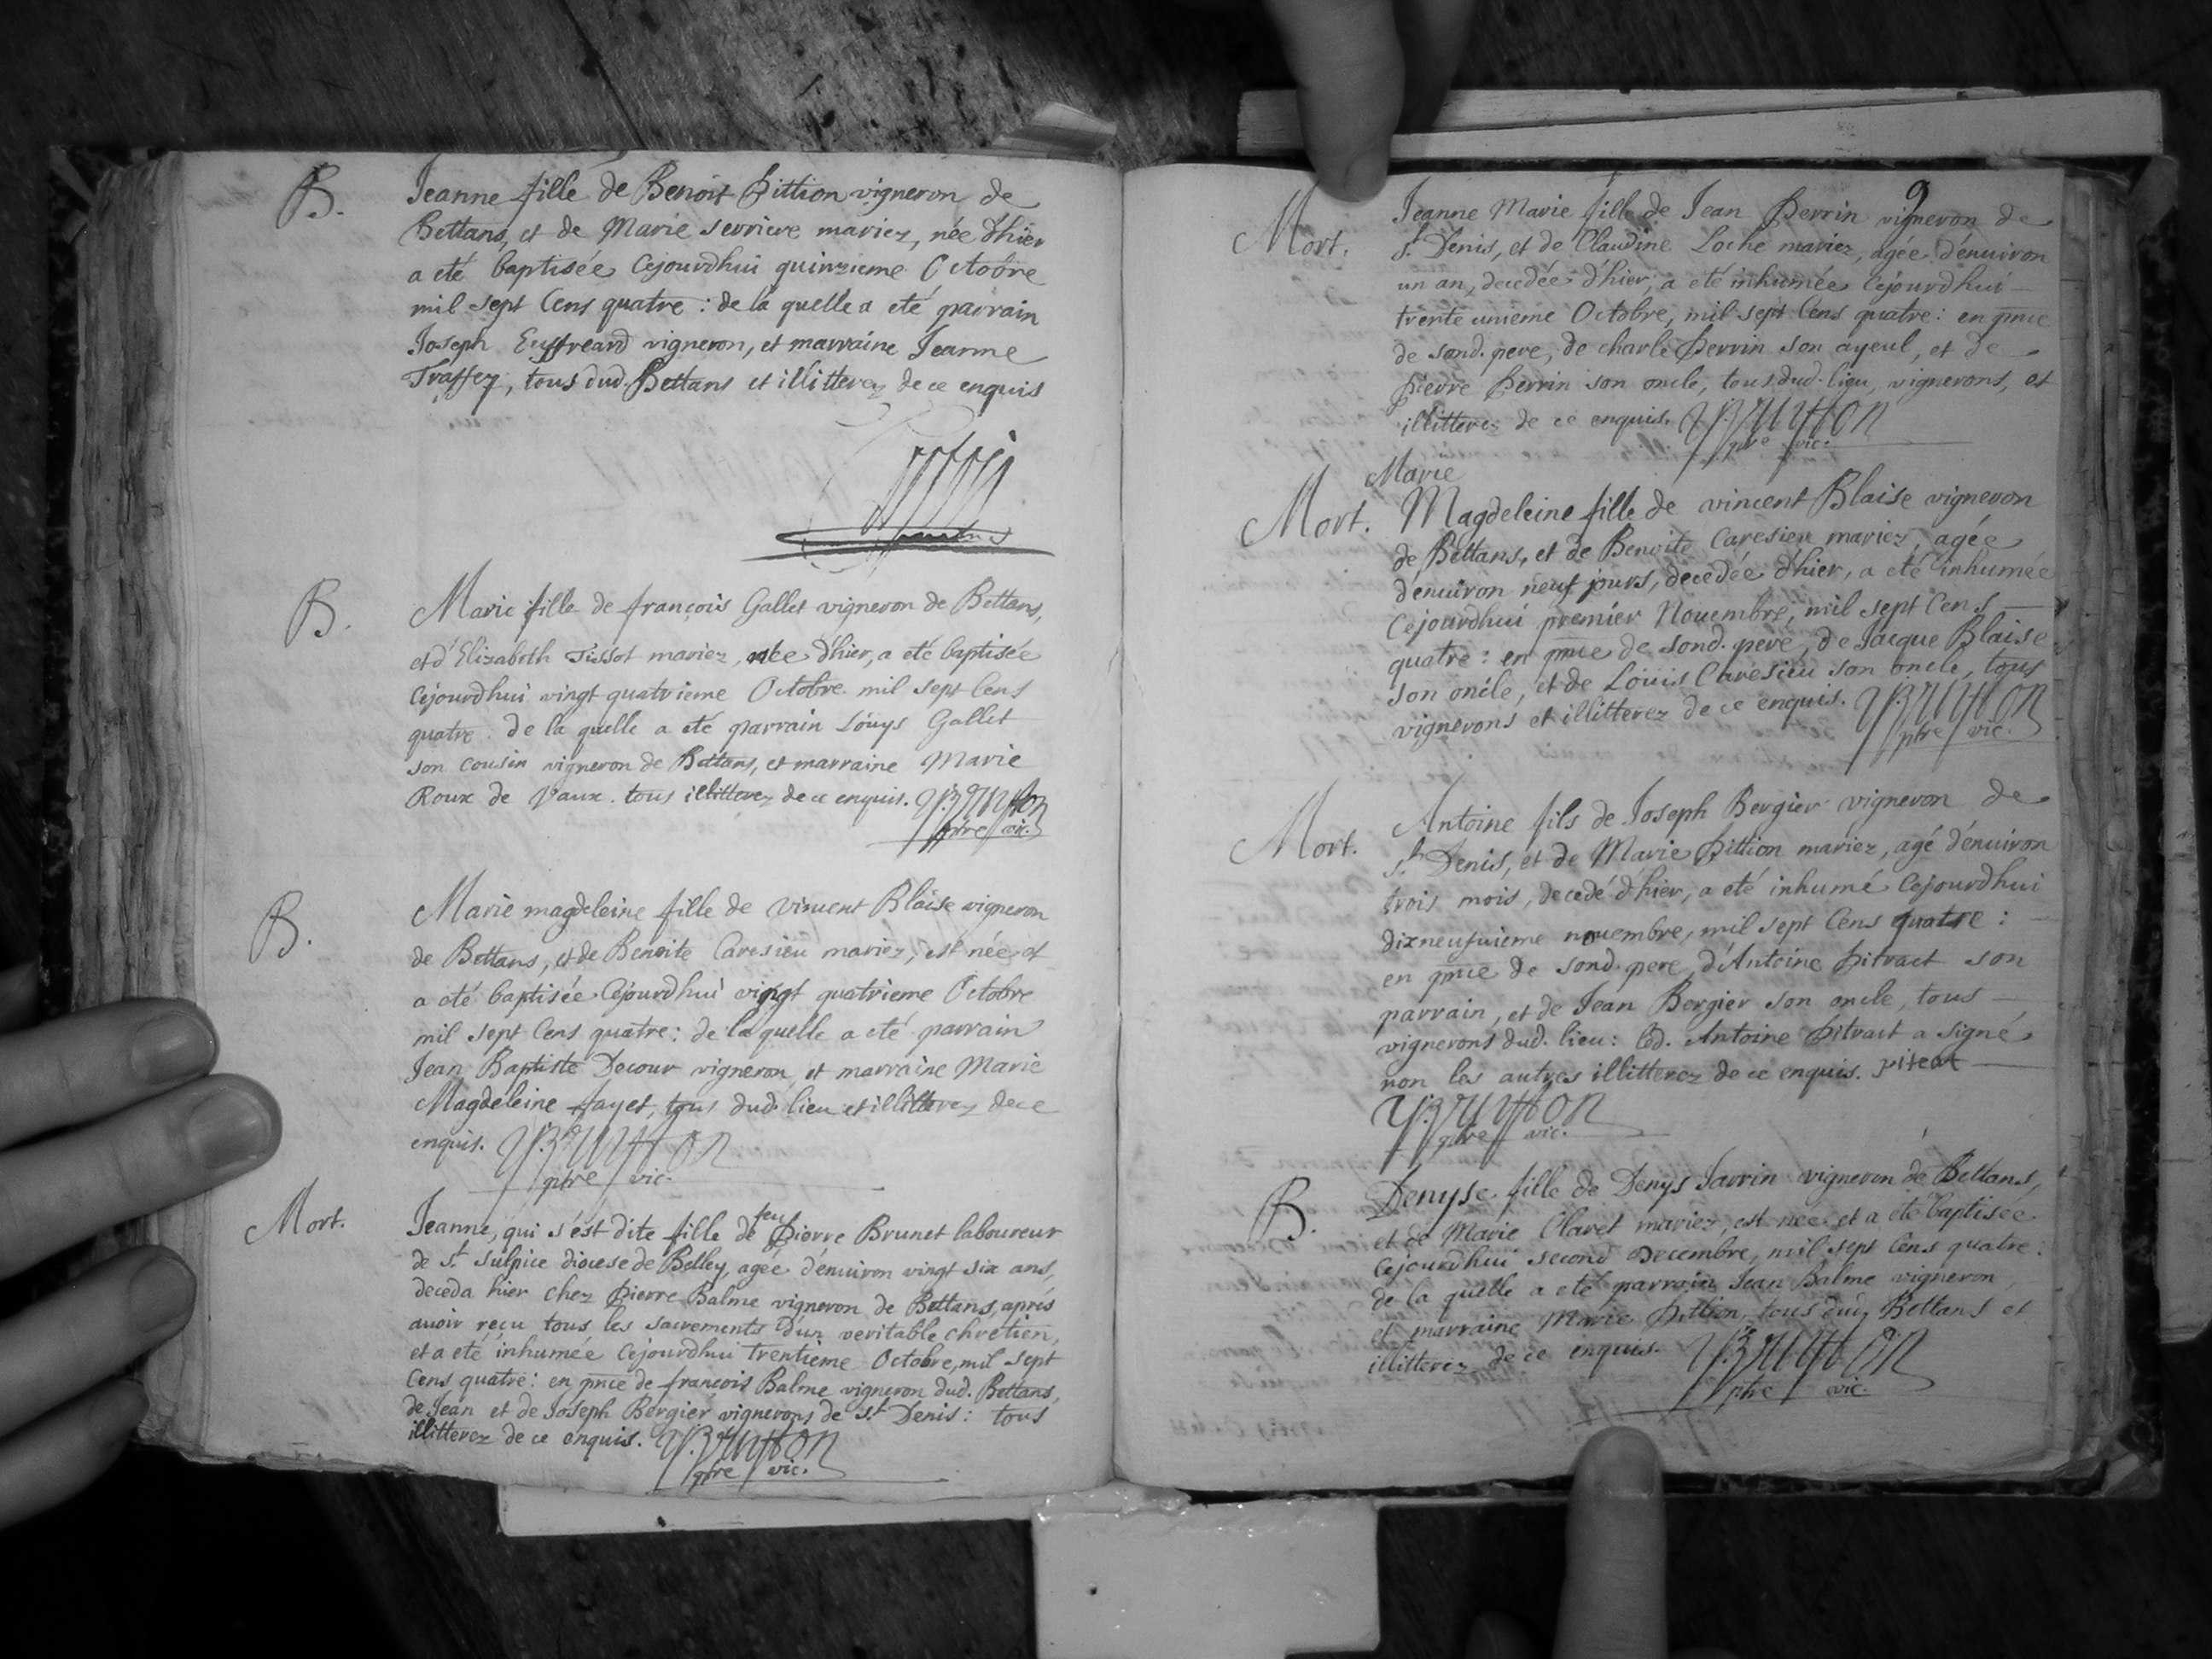 B.
Jeanne fille de Benoit Pittion vigneron de
Bettans, et de Marie serriere mariez, née d'hier
a eté baptisée cejourdhui quinzieme Octobre
mil sept Cens quatre : de la quelle a eté parrain
Joseph Euffreard vigneron, et marraine Jeanne
Traffey, tous dud. Bettans et illitterez de ce enquis
B.
Marie fille de françois Gallet vigneron de Bettans,
et d'Elizabeth Tissot mariez, née d'hier, a eté baptisée
Cejourdhui vingt quatrieme Octobre mil sept Cens
quatre : de la quelle a eté parrain Louys Gallet
son cousin vigneron de Bettans, et marraine Marie
Roux de Vaux. tous illitterez de ce enquis.
ptre vic.
B.
Marie magdeleine fille de Vincent Blaise vigneron
de Bettans, et de Benoite Caresieu mariez, est née et
a eté baptisée Cejourdhui vingt quatrieme Octobre
mil sept Cens quatre : de la quelle a eté parrain
Jean Baptiste Decour vigneron, et marraine Marie
Magdeleine fayet, tous dud. lieu et illitterez de ce
enquis.
ptre vic.
Mort.
Jeanne, qui s'est dite fille de feu Pierre Brunet laboureur
de St. Sulpice diocese de Belley, agée d'enuiron vingt six ans,
deceda hier chez Pierre Balme vigneron de Bettans, aprés
auoir reçu tous les sacrements d'un veritable chretien,
et a eté inhumée Cejourdhui trentieme Octobre, mil sept
Cens quatre : en pnce de francois Balme vigneron dud. Bettans,
de Jean et de Joseph Bergier vignerons de St Denis : tous
illitterez de ce enquis.
ptre vic.
9
Mort.
Jeanne Marie fille de Jean Perrin vigneron de
St. Denis, et de Claudine Loche mariez, agée d'enuiron
un an, decedée d'hier, a eté inhumée Cejourdhui
trente unieme Octobre, mil sept Cens quatre : en pnce
de sond. pere, de charle Perrin son ayeul, et de
Pierre Perrin son oncle, tous dud. lieu, vignerons, et
illitterez de ce enquis.
ptre vic.
Marie
Mort.
Magdeleine fille de vincent Blaise vigneron
de Bettans, et de Benoite Caresieu mariez, agée
d'enuiron neuf jours, decedée d'hier, a eté inhumée
Cejourdhui premier Nouembre, mil sept Cens
quatre : en pnce de sond. pere, de Jacque Blaise
son oncle, et de Louis Caresieu son oncle, tous
vignerons et illitterez de ce enquis.
ptre vic.
Mort.
Antoine fils de Joseph Bergier vigneron de
St. Denis, et de Marie Pittion mariez, agé d'enuiron
trois mois, decedé d'hier, a eté inhumé Cejourdhui
dixneufuieme nouembre, mil sept Cens quatre :
en pnce de sond. pere, d'Antoine Pitract son
parrain, et de Jean Bergier son oncle, tous
vignerons dud. lieu : led. Antoine Pitract a signé
non les autres illitterez de ce enquis.
ptre vic.
B.
Denyse fille de Denys Jarrin vigneron de Bettans,
et de Marie Claret mariez, est née et a eté baptisée
Cejourdhui second Decembre, mil sept Cens quatre :
de la quelle a eté parrain Jean Balme vigneron,
et marraine Marie Pittion, tous dud. Bettans et
illitterez de ce enquis.
ptre vic.